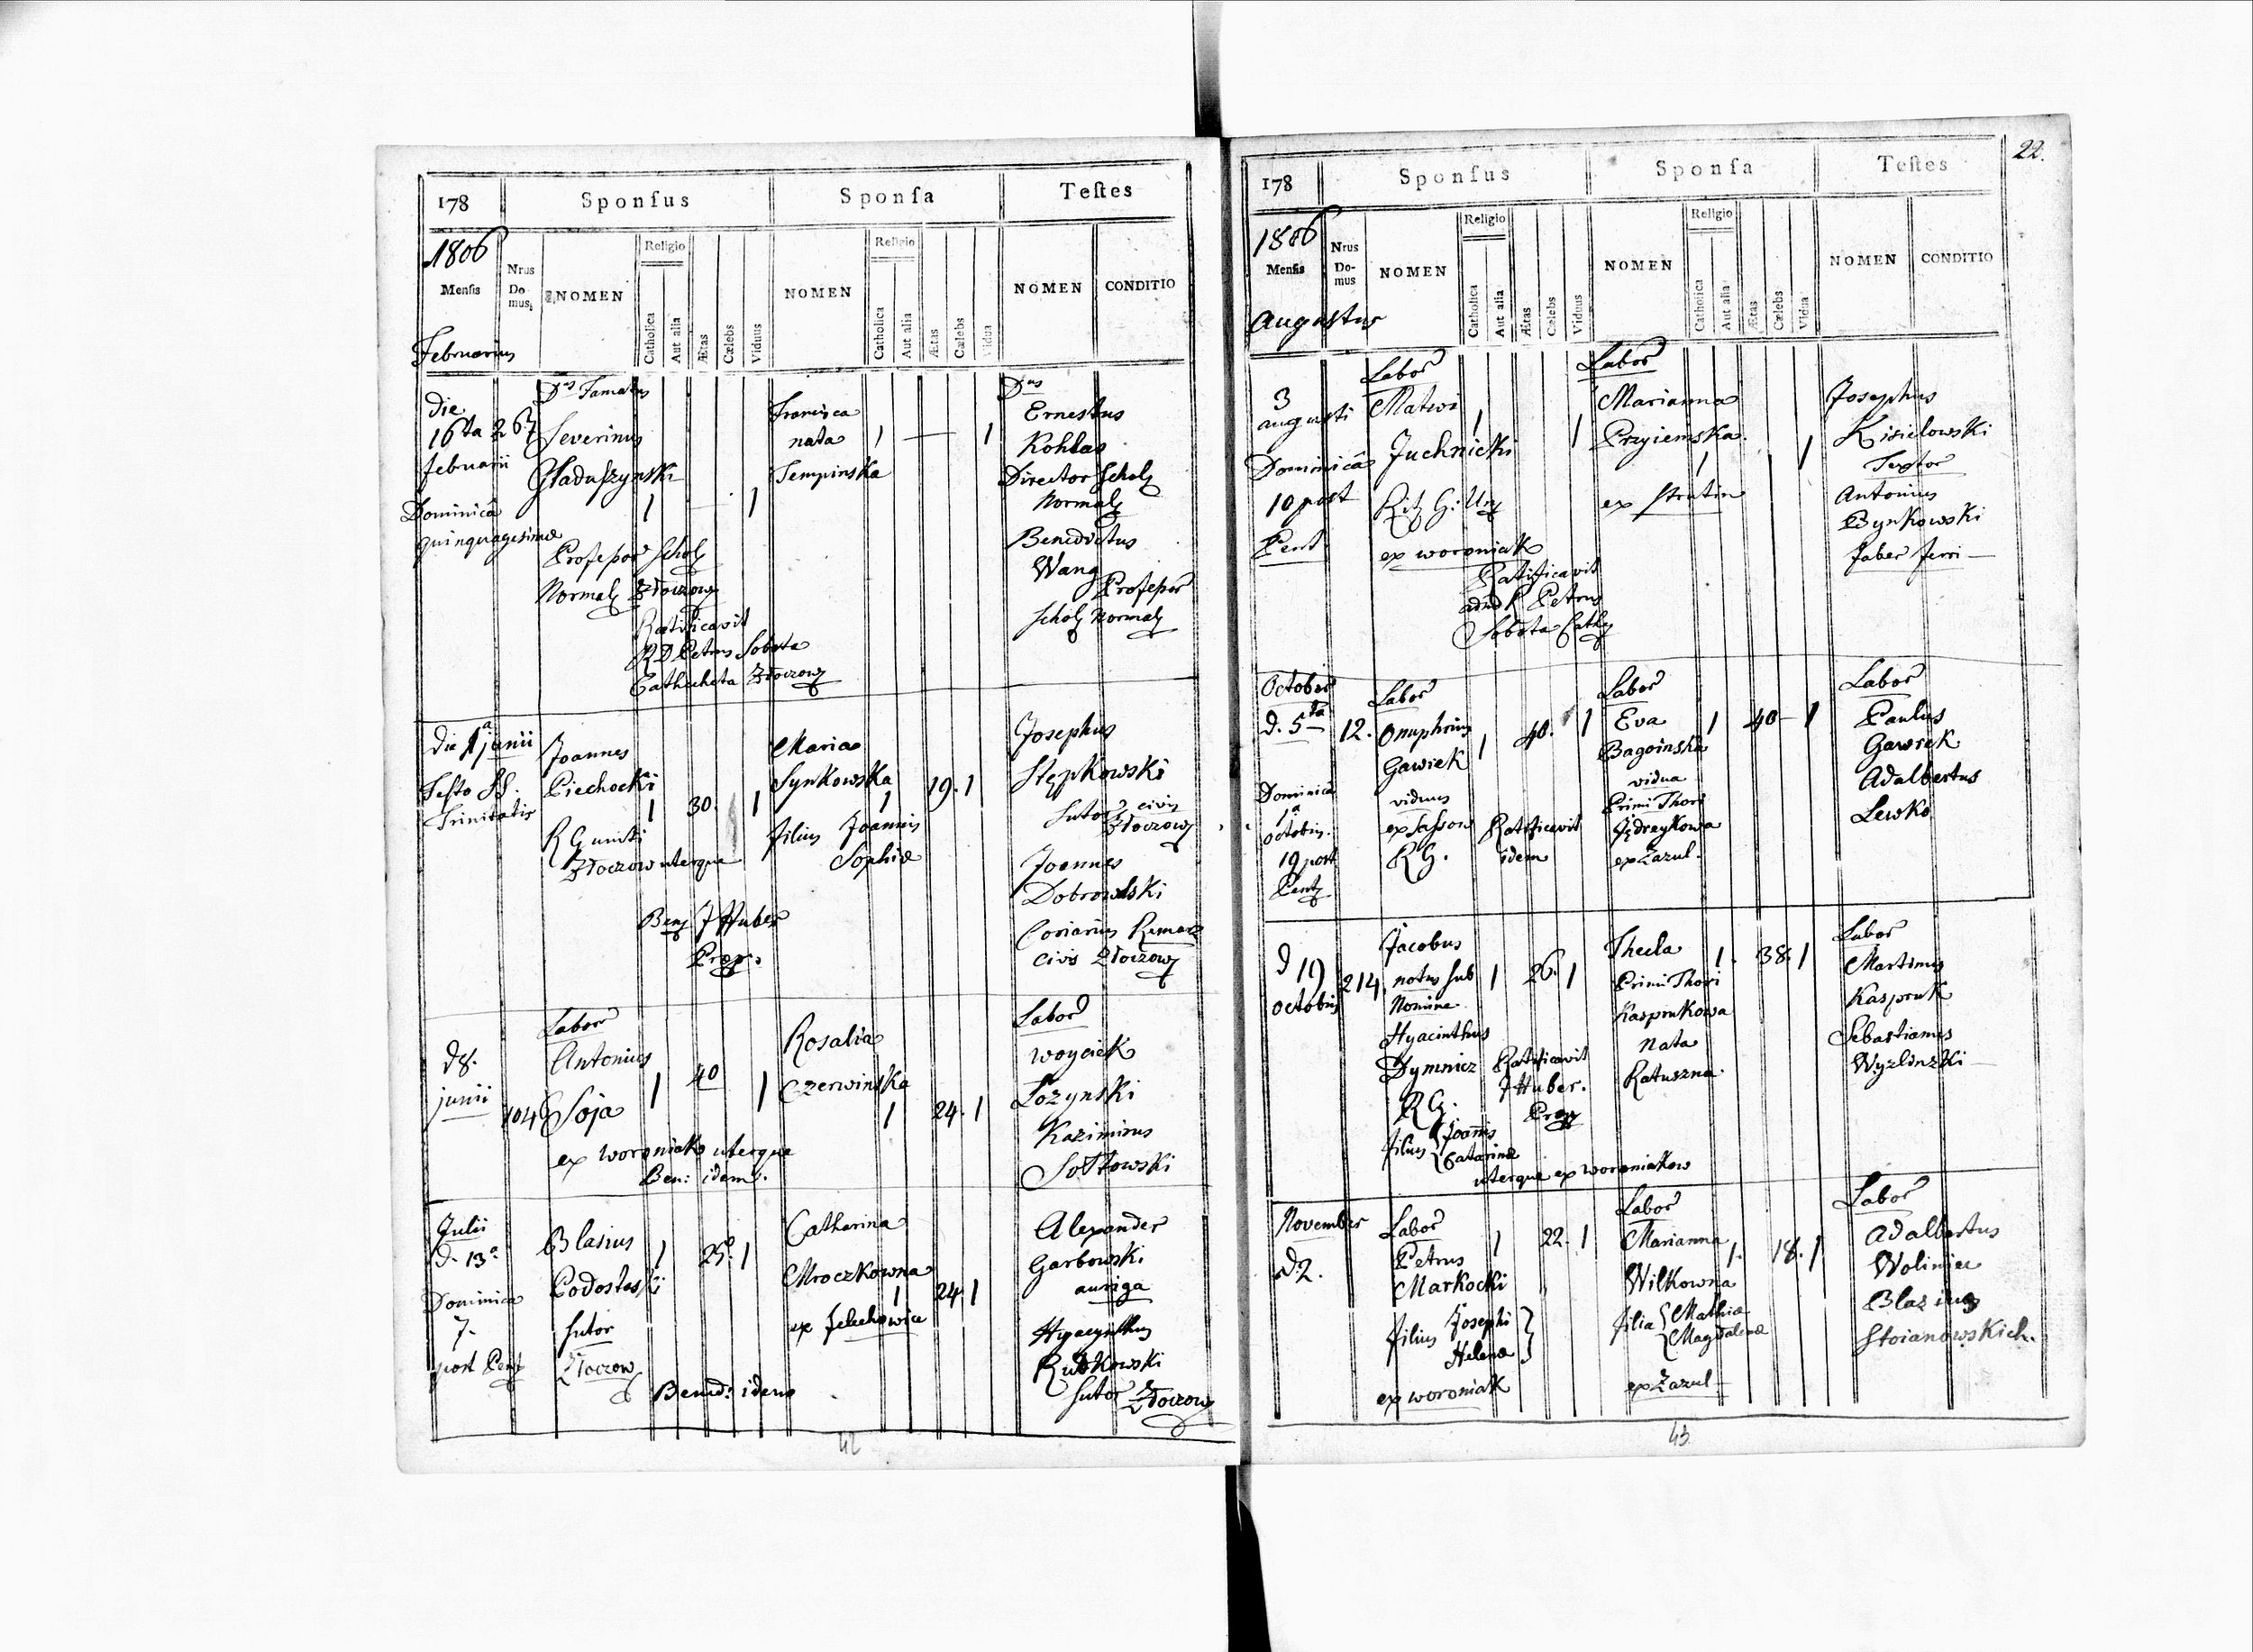 178 Sponſus Sponſa Teſtes
1806
Menſis
Nrus Do-mus
NOMEN
Religio
Catholica
Aut alia
Ætas
Cœlebs
Viduus
NOMEN
Religio
Catholica
Aut alia
Ætas
Cœlebs
Vidua
NOMEN
CONDITIO
Februarius
Die
16ta 267
februarii
Dominicâ
quinquagesimæ
Severinus
Professor Schol
Normal Złoczow
Ratificavit
RD Petrus Sobota
Cathecheta Złoczow
Francisca
nata 1 1
Tempinska
Dnus
Ernestus
Kohlas
Director Schol
Normal
Benedictus
Wang
Professor
Schol Normal
Die 1a junii
Festo SS.
Trinitatis
Joannes
Piechocki
1 30. 1
RG uniti
Złoczow uterque
Ben J Huber
Præp:
Maria
Synkowska 19. 1
1
filius Joannis
Sophiæ
Josephus
Stępkowski
Sutor civis
Złoczow
Joannes
Dobrowolski
Coriarius Rimarz
civis Złoczow
D 8.
junii
104
Labor
Antonius
1 40 1
Soja
ex woroniak uterque
Ben: idem.
Rosalia
Czerwinska
1 24. 1
Labor
woyciek
Łozynski
Kazimirus
Sołtowski
Julii
d. 13a
Dominica
7.
post Pent
Blasius
1 25. 1
Podostaski
Sutor
Złoczow
Bened: idem
Catharina
Mroczkowna
1 24. 1
ex Jelechowice
Alexander
Garbowski
auriga
Hyacynthus
Rudkowski
Sutor Złoczow
42
22.
178 Sponſus Sponſa Teſtes
1806
Menſis
Nrus Do-mus
NOMEN
Religio
Catholica
Aut alia
Ætas
Cœlebs
Viduus
NOMEN
Religio
Catholica
Aut alia
Ætas
Cœlebs
Vidua
NOMEN
CONDITIO
Augustus
3
augusti
Dominicâ
10 post
Pent
Labor
Matwi
Juchnicki 1 1
Rit G: Un
ex woroniak
Ratificavit
R Petrus
Sobota Cath
Labor
Marianna
Przyiemska.
1 1
ex Strutin
Josephus
Kisielowski
Textor
Antonius
Bynkowski
faber ferri
October
d. 5ta 12.
Dominica
1a
octobris.
19 post
Pent
Labor
Onuphrius
Gawiek 1 40. 1
viduus
ex Sassow
RG.
Ratificavit
idem
Labor
Eva 1 40 1
Bagoinska
vidua
Primi Thori
Jędreykowa
ex Zazul.
Labor
Paulus
Gawrek
Adalbertus
Lewko
d 19
octobris
214
Jacobus
notus sub 1 26. 1
Nomine
Hyacinthus
Dymnicz
RG.
filius Joannis
Catarinæ
Ratificavit
J Huber.
Præp
uterque ex woroniakow
Thecla 1. 38. 1
Primi Thori
Kasprukowa
nata
Ratuszna
Labor
Martinus
Kaspruk
Sebastianus
Wyzlinzki
November
d. 2.
Labor
Petrus 1 22. 1
Markocki
filius Josephi
Helenæ
ex woroniak
Labor
Marianna 1. 18. 1
Wilkowna
filia Mathiæ
Magdalenæ
ex Zazul
Labor
Adalbertus
Woliniec
Blazius
Stoianowskich.
43